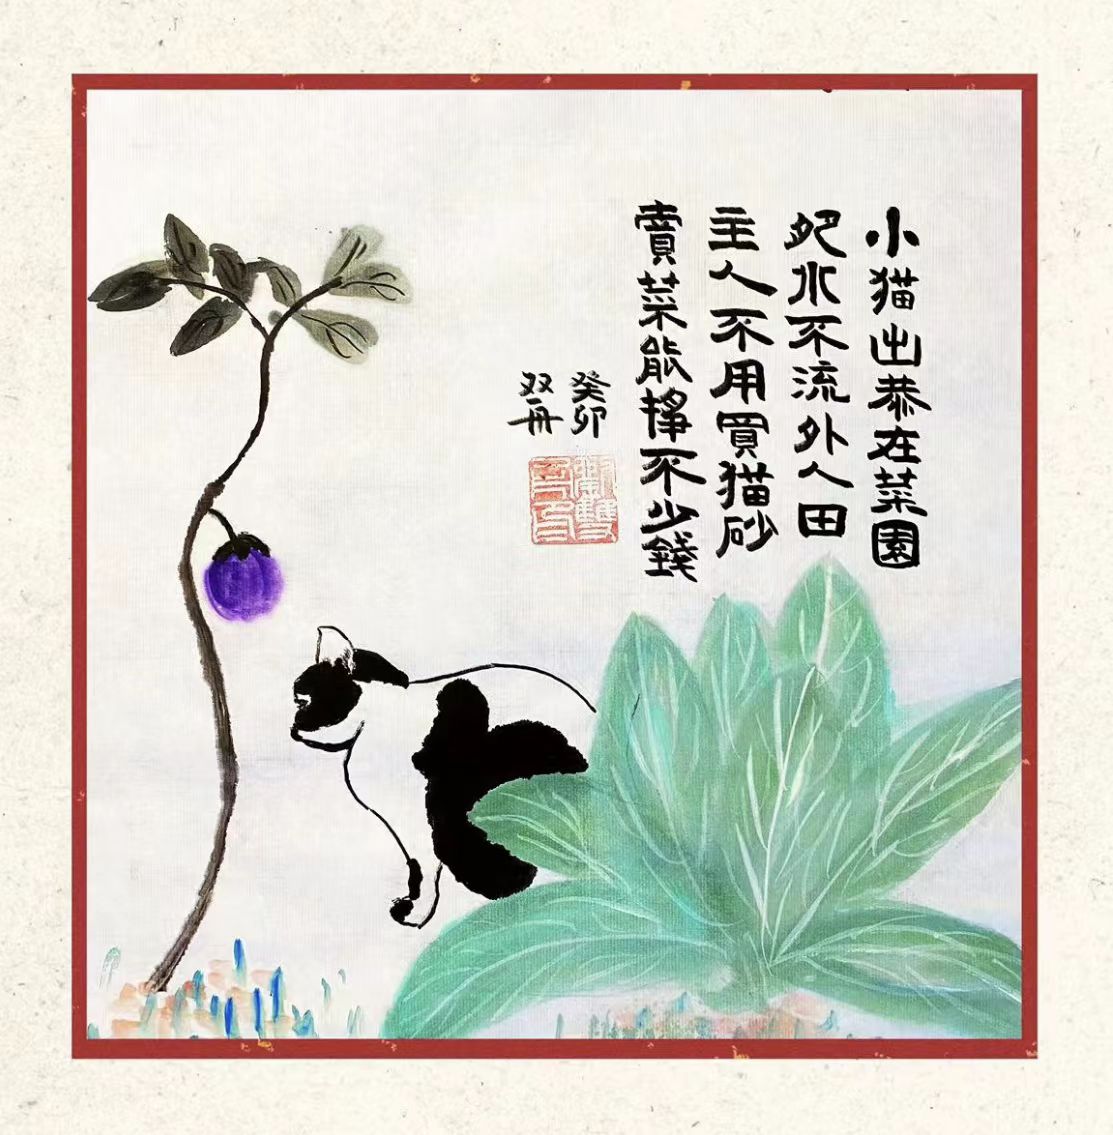 小猫出恭在菜園
肥水不流外人田
主人不用買猫砂
賣菜能掙不少錢
癸卯
双舟